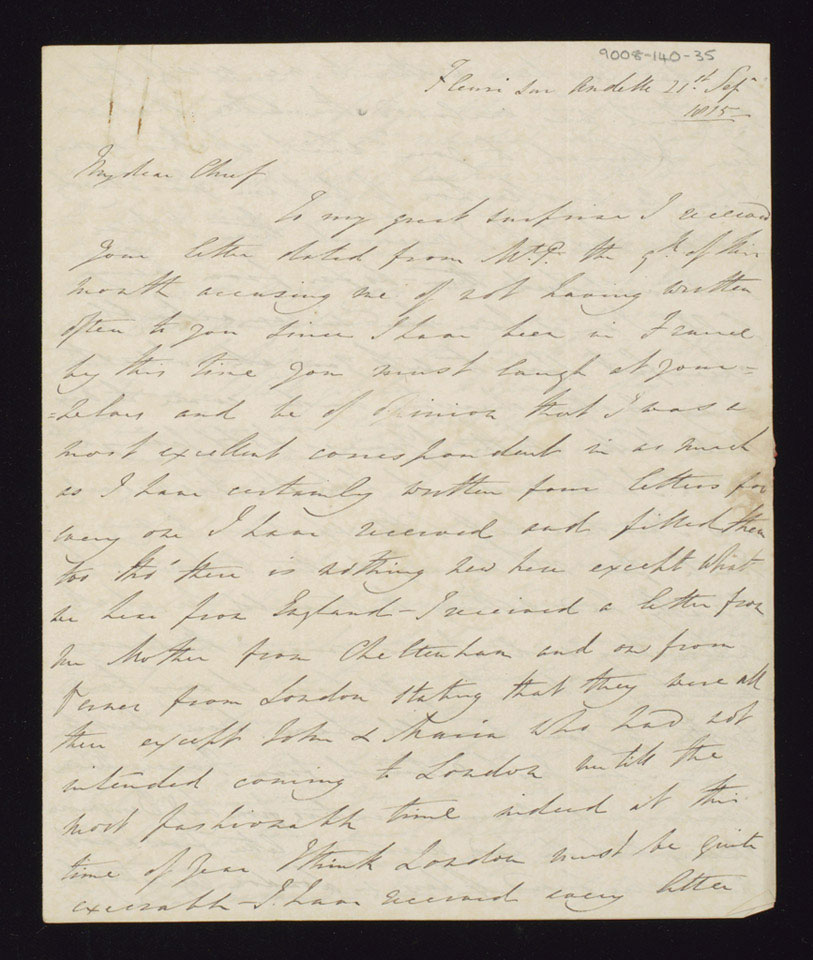 9008-140-35
Fleuri sur Andelle 21st Sep
1815
My dear Chief
To my great surprise I received
your letter dated from Mt. P. the 9th of this
month accusing me of not having written
often to you since I have been in France
by this time you must laugh at your=
=selves and be of opinion that I was a
most excellent correspondent in as much
as I have certainly written four letters for
every one I have received and filled them
too tho' there is nothing new here except what
we hear from England – I received a letter from
my Mother from Cheltenham and on from
from London stating that they were all
there except John & Maria who had not
intended coming to London untill the
most fashionable time indeed at this
time of year I think London must be quite
execrable – I have received every letter